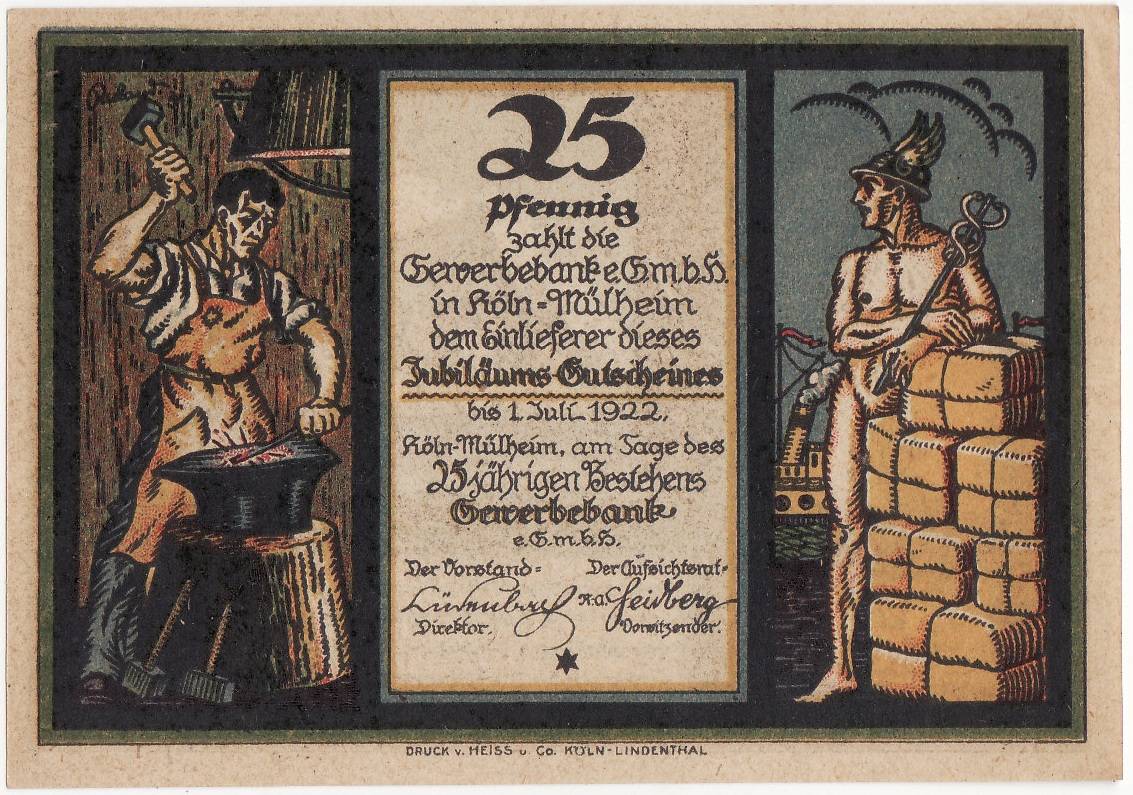 25
Pfennig
zahlt die
Gewerbebank e.G.m.b.H.
in Köln-Mülheim
dem Einlieferer dieses
Jubiläums-Gutscheines
bis 1. Juli 1922.
Köln-Mülheim, am Tage des
25 jährigen Bestehens
Gewerbebank
e.G.m.b.H.
Der Vorstand= Der Aufsichtsrat=
Lüdenbach R.A. Heidberg
Direktor. Vorsitzender.
DRUCK v. HEISS u. Co. KÖLN-LINDENTHAL